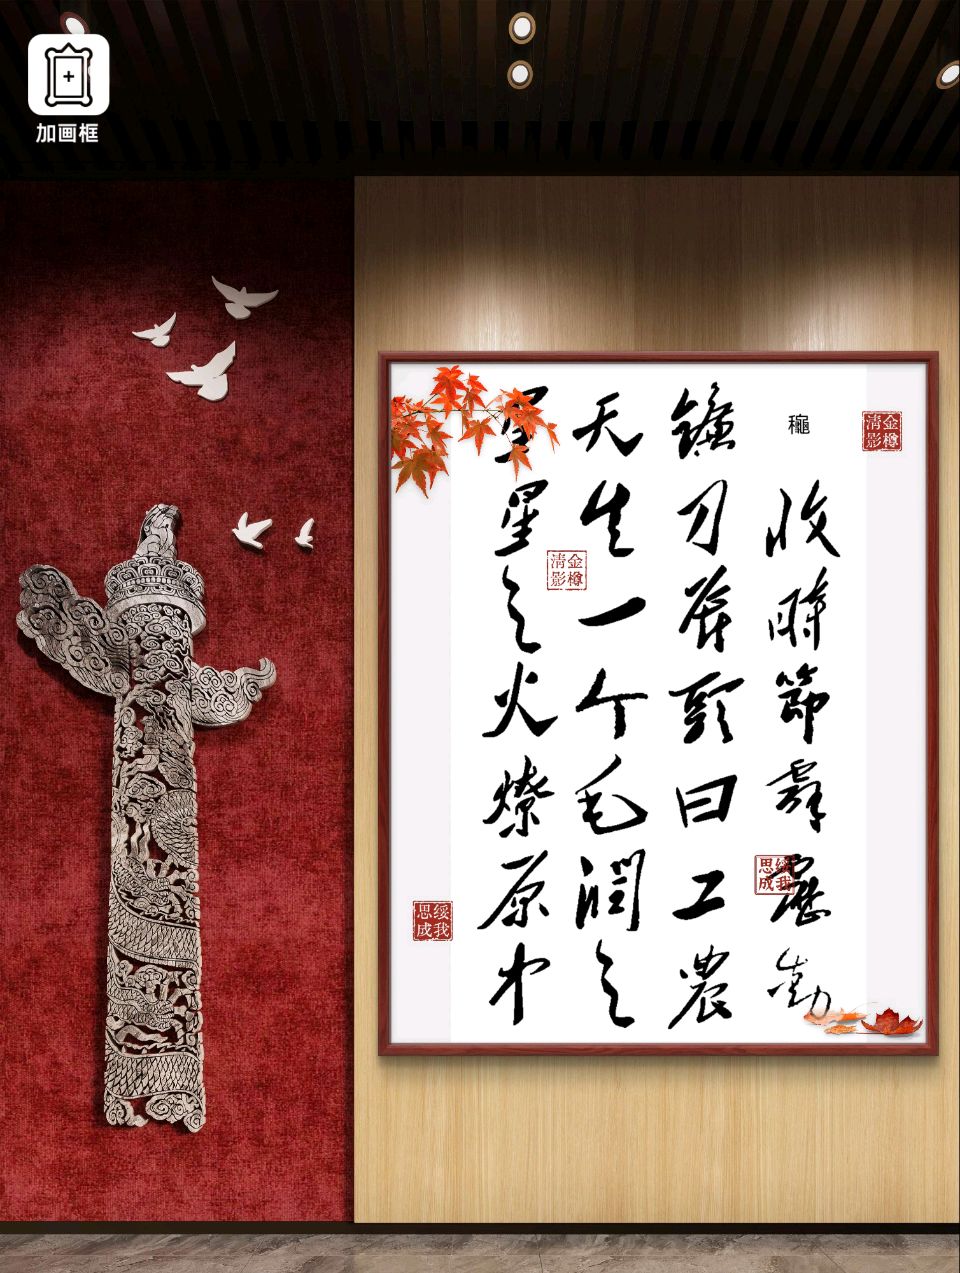 加画框
金樽
清影
穐收時節霹靂動
鐮刀斧頭曰工農
天生一个毛潤之
星星之火燎原中
金樽
清影
绥我
思成
绥我
思成